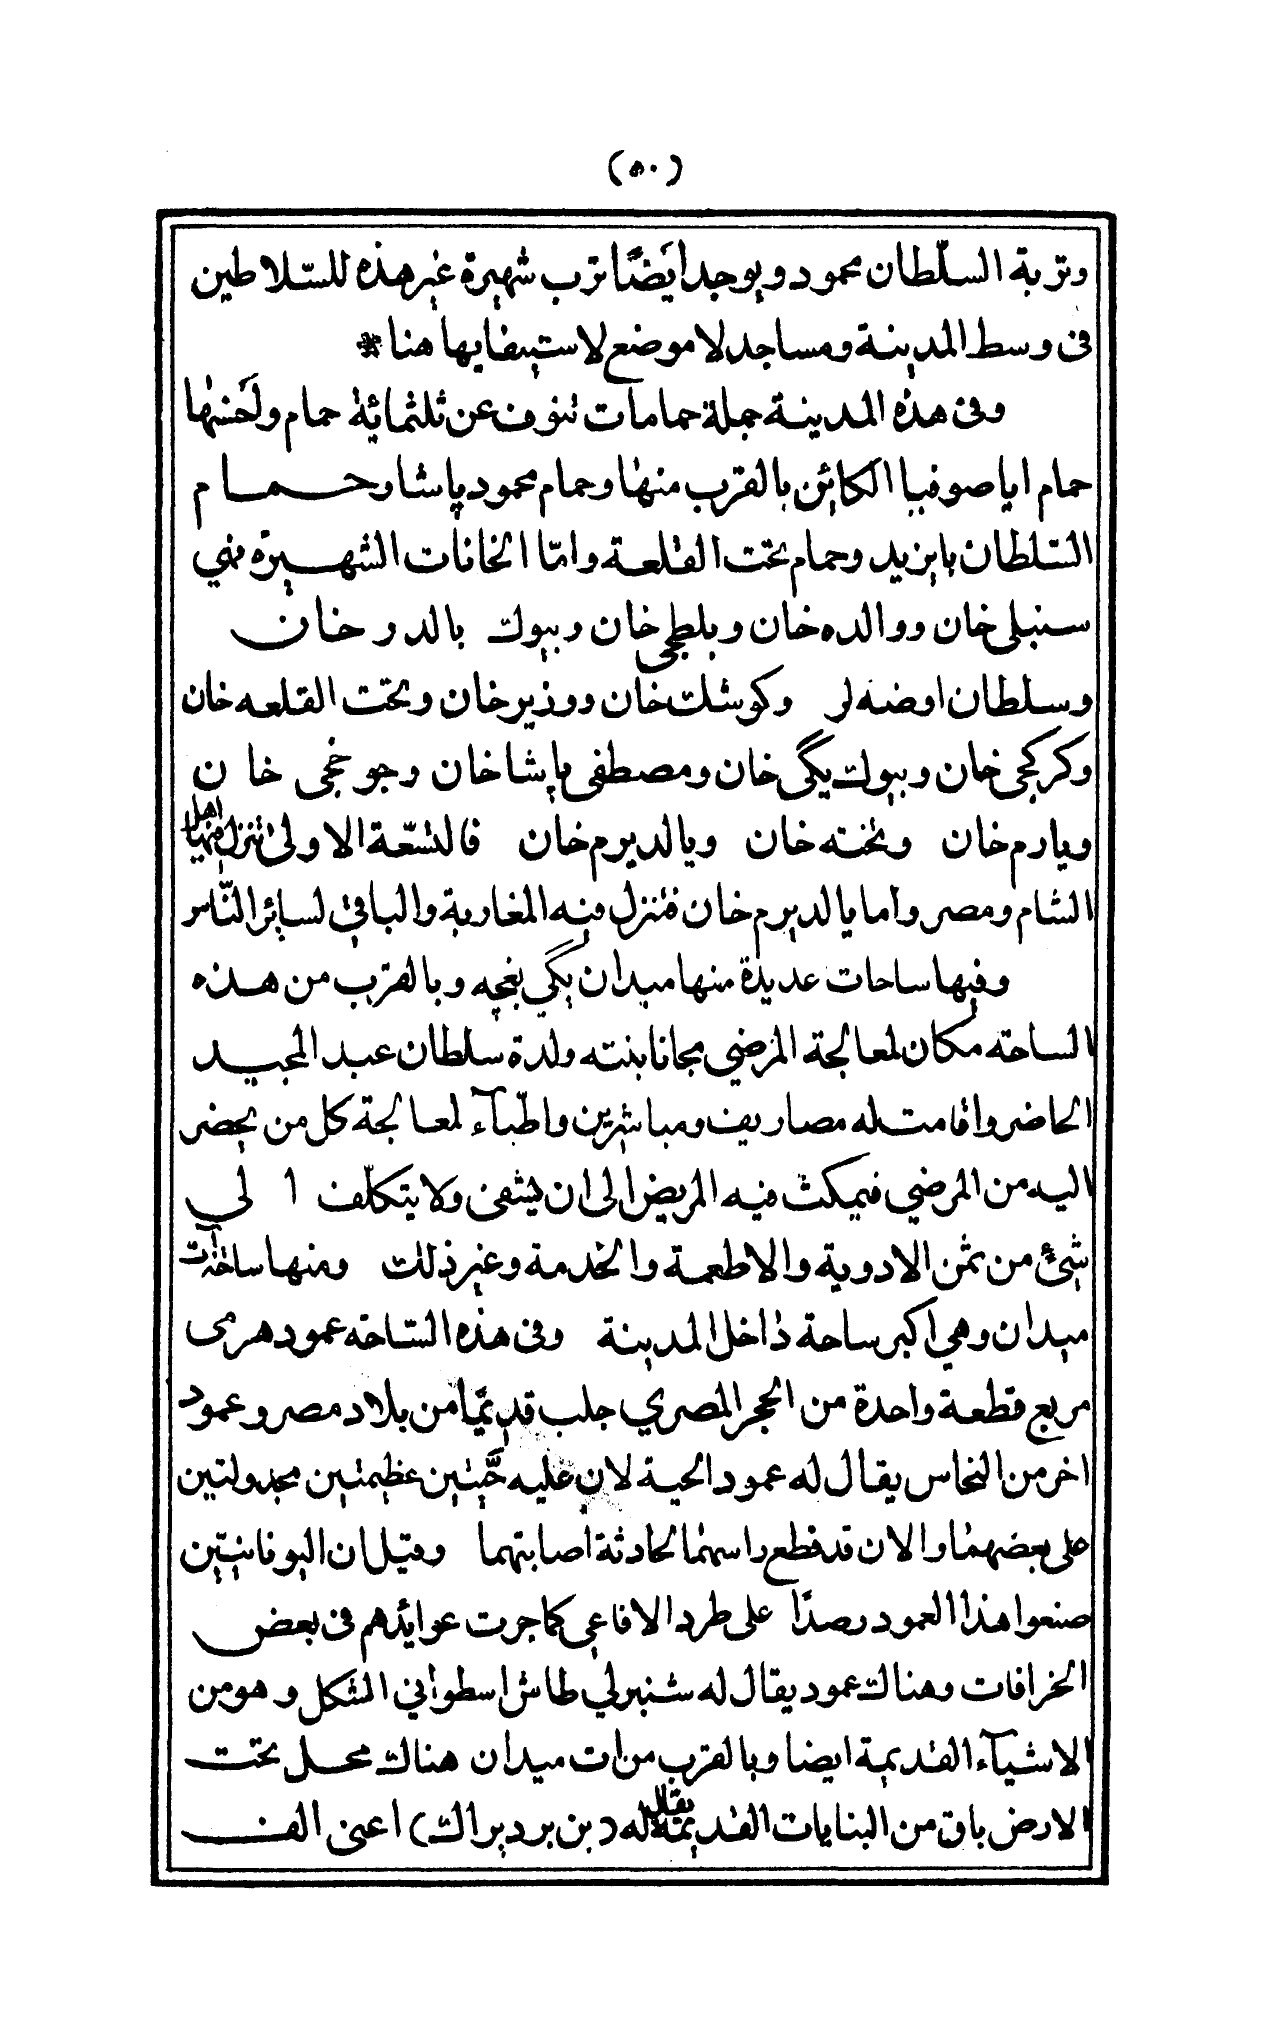 (٥٠)
وتربة السلّطان محمود ويوجد أيضًا ترب شهيرة غير هذه للسّلاطين
فى وسط المدينة ومساجد لا موضع لاستيفايها هنا *
وفى هذه المدينة جملة حمامات تنوف عن ثلثمائة حمام وأحسنها
حمام اياصوفيا الكائن بالقرب منها وحمام محمود پاشا وحمام
السّلطان بايزيد وحمام تحت القلعة وامّا الخانات الشهيرة فهي
سنبلى خان ووالده خان وبلطجى خان وبيوك يالدر خان
وسلطان اوضه لر وكوشك خان ووزير خان وتحت القلعه خان
وكركجى خان وبيوك يگى خان ومصطفى پاشا خان وجوخجى خان
ويارم خان وتخته خان ويالديرم خان فالتسّعة الاولى تنزل منها اهل
الشام ومصر وأما يالديرم خان فتنزل فيه المغاربة والباقي لسائر النّاس
وفيها ساحات عديدة منها ميدان يگي بغچه وبالقرب من هذه
الساحة مكان لمعالجة المرضي مجانا بنته ولدة سلطان عبد المجيد
الحاضر واقامت له مصاريف ومباشرين واطبّآء لمعالجة كل من يحضر
اليه من المرضي فيمكث فيه المريض الى ان يشفى ولا يتكلّف الي
شئ من ثمن الادوية والاطعمة والخدمة وغير ذلك ومنها ساحة آت
ميدان وهي اكبر ساحة داخل المدينة وفى هذه السّاحة عمود هرمى
مربع قطعة واحدة من الحجر المصري جلب قديمًا من بلاد مصر وعمود
اخر من النحاس يقال له عمود الحية لان عليه حيّتين عظيمتين مجدولتين
على بعضهما والان قد قطع راسهما لحادثة اصابتهما وقيل ان اليونانيّين
صنعوا هذا العمود رصدًا على طرد الافاعي كما جرت عوايدهم فى بعض
الخرافات وهناك عمود يقال له شنبرلي طاش اسطواني الشكل وهو من
الاشيآء القديمة ايضا وبالقرب من ات ميدان هناك محل تحت
الارض باق من البنايات القديمة يقال له (بن بر ديراك) اعنى الف